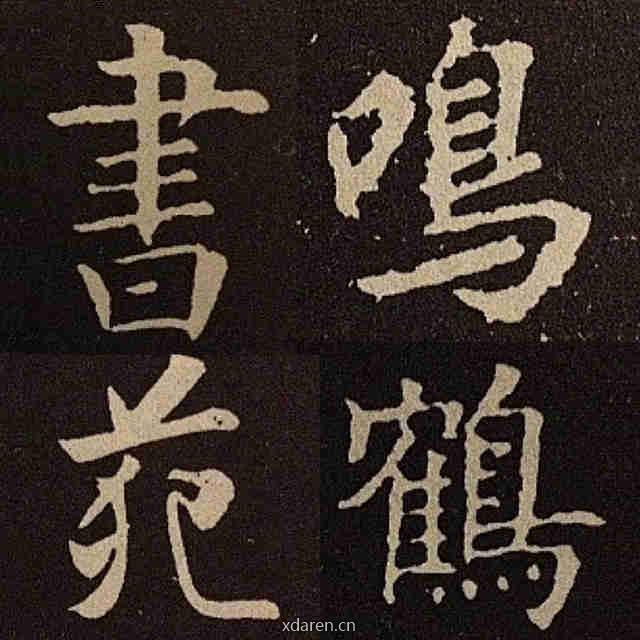 鳴鶴
書苑
xdaren.cn